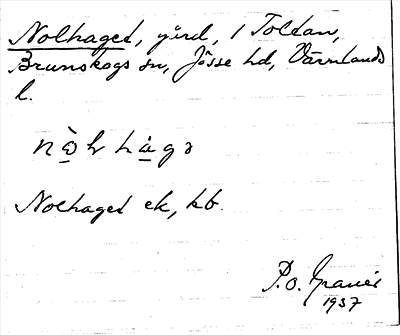 Nolhaget, gård, i Toltan,
Brunskogs sn, Jösse hd, Värmlands
l.
Nolhaget ek, kb.
P.O. Granér
1937